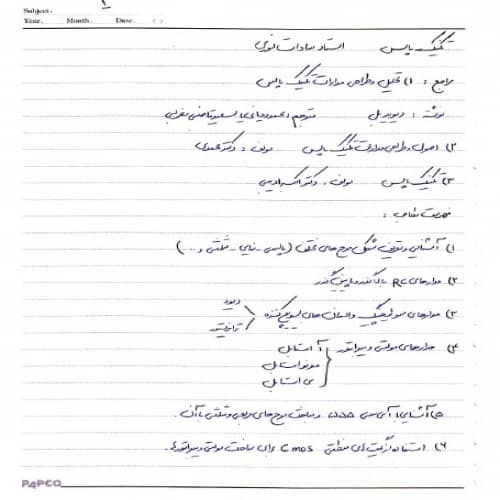 Subject:
Year. Month. Date. ( )
تکنیک پالس استاد سادات نوری
مراجع : ۱) تحلیل و طراحی مدارات تکنیک پالس
نوشته : دیوید بل مترجم :
۲) اصول و طراحی مدارات تکنیک پالس مولف : دکتر عبدی
۳) تکنیک پالس مولف : دکتر
فهرست مطالب :
۱) آشنایی و تعریف شکل موج های مختلف (پالس - نمایی - مثلثی و ...)
۲) مدارهای RC بالاگذر و پایین گذر
۳) مدارهای سوئیچینگ و المان های سوئیچ کننده دیود
ترانزیستور
۴) مدارهای مولتی ویبراتور آ استابل
مونو استابل
بی استابل
۵) آشنایی با آی سی 555 و ساخت موج های مربعی و مثلثی با آن.
۶) استفاده از گیت های منطقی CMOS برای ساخت مولتی ویبراتورها.
PAPCO